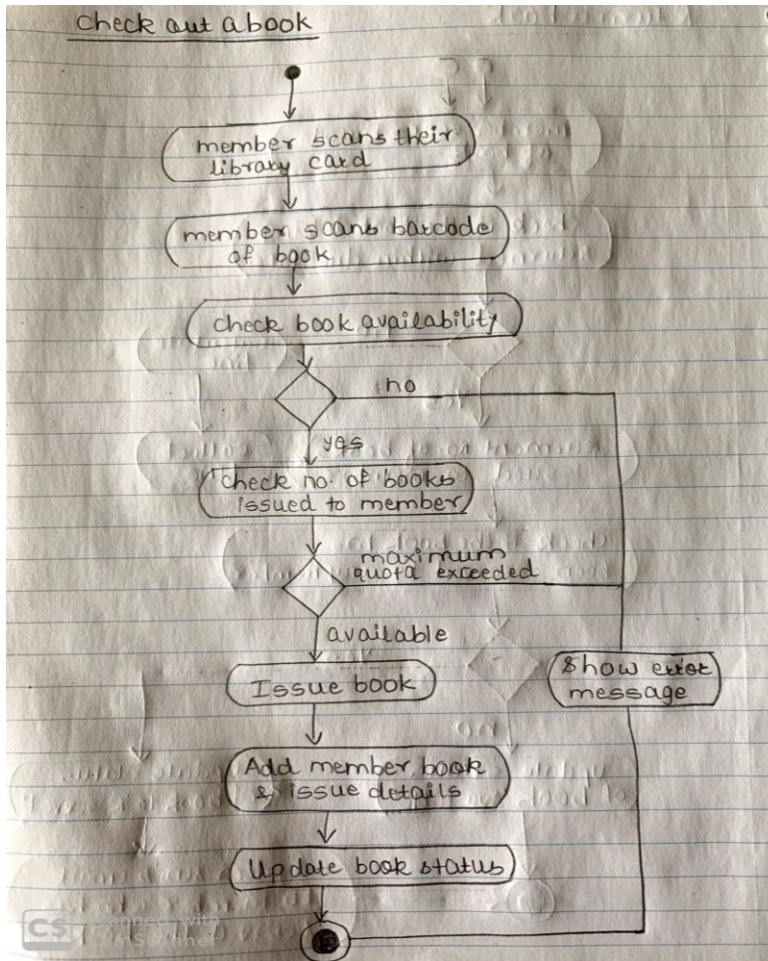 Check out a book
member scans their
library card
member scans barcode
of book
check book availability
no
yes
check no. of books
issued to member
maximum
quota exceeded
available
Issue book
Show error
message
Add member, book
& issue details
Update book status
CS